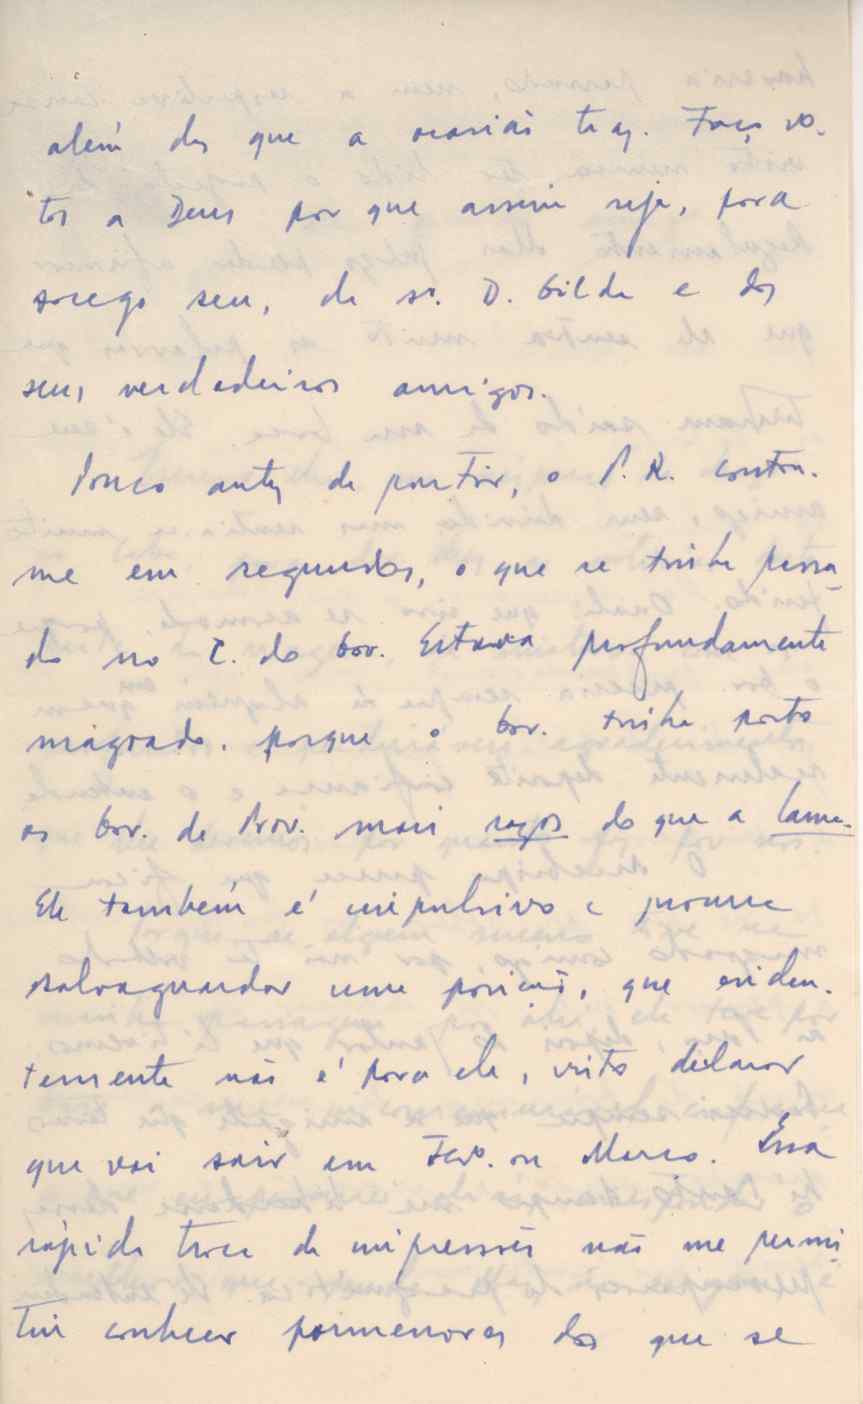 além das que a ocasião traz. Faço vo-
tos a Deus por que assim seja, para
socego seu, da sr. D. Gilda e dos
seus verdadeiros amigos.
Pouco antes de partir, o P. R. contou-
me em segundos, o que se tinha passa-
do no C. do Gov. Estava profundamente
magoado, porque o Gov. tinha posto
os Gov. de Prov. mais rasos do que a lama.
Ele também é impulsivo e procura
salvaguardar uma posição, que eviden-
temente não é para ele, visto declarar
que vai sair em Fevo. ou Março. Essa
rápida troca de impressões não me permi-
tiu conhecer pormenores dos que se